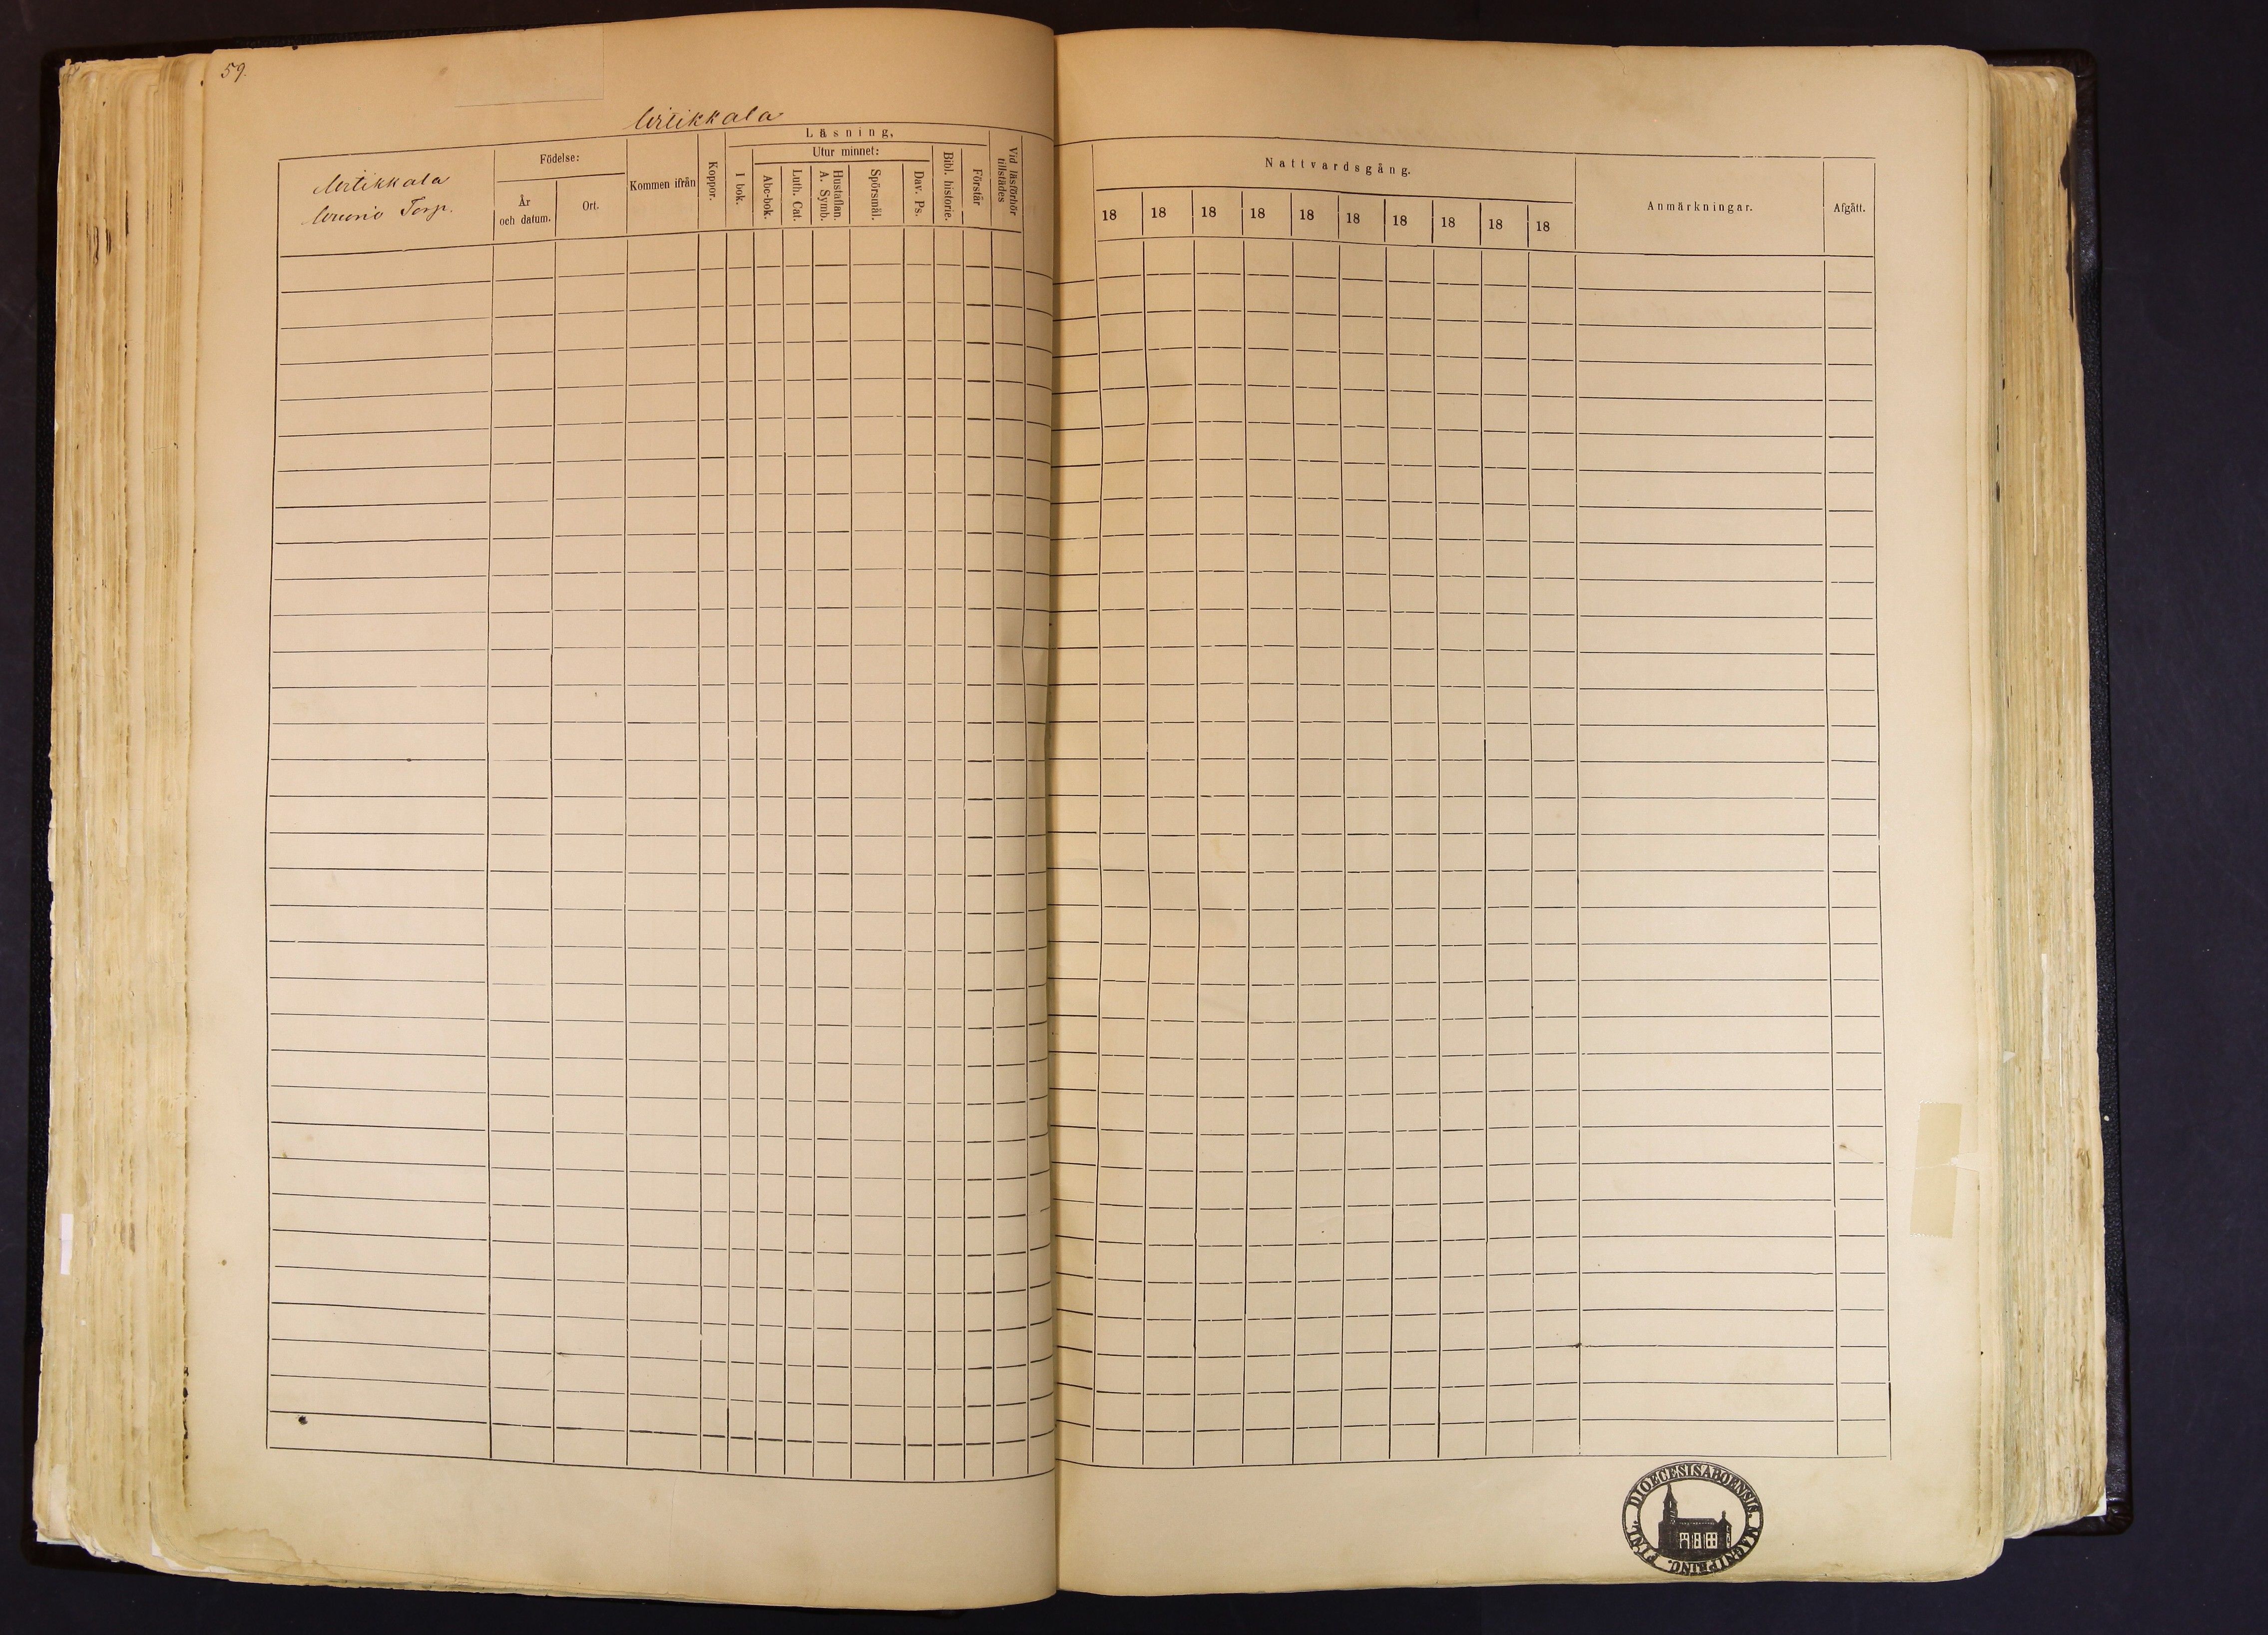 59.
Artikkala
Artikkala
Torp.
Födelse:
År och datum.
Ort.
Kommen ifrån
Koppor.
Läsning,
I bok.
Utur minnet:
Abc-bok.
Luth. Cat.
Hustaflan. A. Symb.
Spörsmål.
Dav. Ps.
Bibl. historie.
Förstår
Vid läsförhör tillstädes
Nattvardsgång.
18 18 18 18 18 18 18 18 18 18
Anmärkningar.
Afgått.
DIOECESIS ABOENSIS. MAGNI PRINC. FINL.